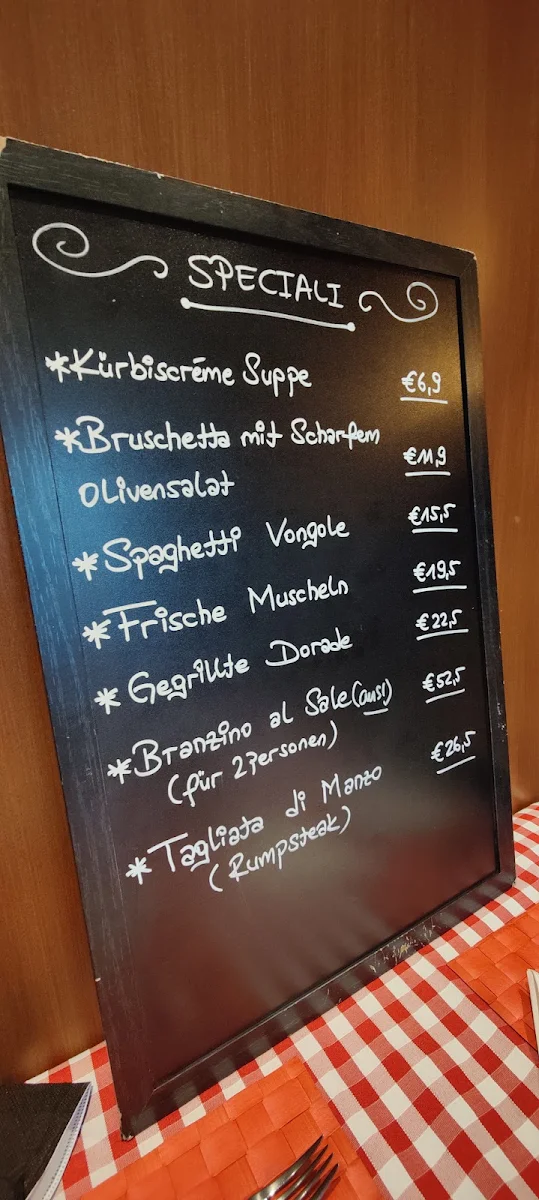 SPECIALI
*Kürbiscréme Suppe €6,9
*Bruschetta mit Scharfem €11,9
Olivensalat
*Spaghetti Vongole €15,5
*Frische Muscheln €19,5
*Gegrillte Dorade €22,5
*Branzino al Sale €52,5
(für 2 Personen)
*Tagliata di Manzo €26,5
(Rumpsteak)